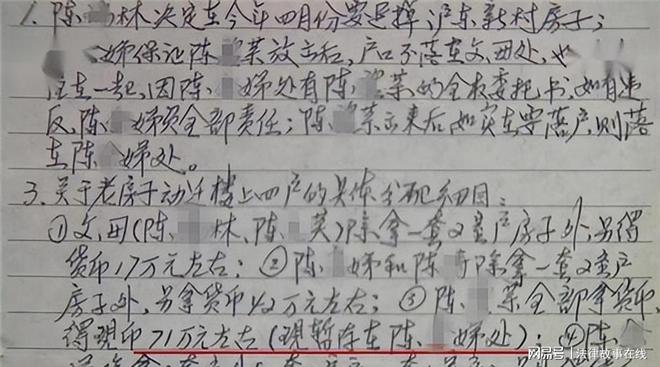 1. 陈 林决定在今年四月份要卖掉沪东新村房子;
娣保证陈 英放出后,户口不落在父母处,也
住在一起,因陈 娣处有陈 英的全权委托书,如有违
反,陈 娣须全部责任;陈 英出来后如实在要落户,则落
在陈 娣处。
3.关于老房子动迁楼上四户的具体分配细目:
①父、母(陈 林、陈 英)除拿一套 产房子外,另得
货币17万元左右;②陈 娣和陈 除拿一套 产
房子外,另拿货币42万元左右;③陈 英全部拿货币,
得现币71万元左右(现暂存在陈 娣处);④陈
网易号 | 法律故事在线